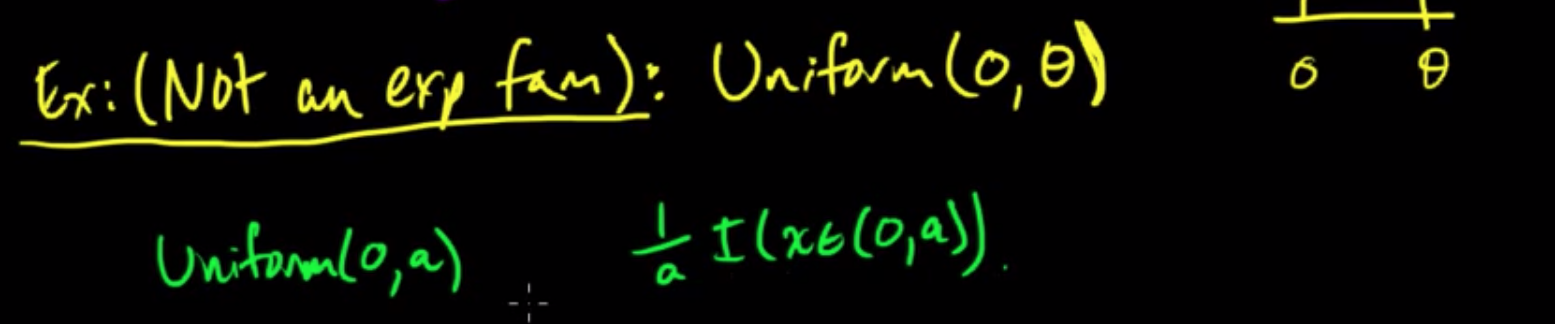 Ex: (Not an exp fam): Uniform(0, θ)
0 θ
Uniform(0, a) 1/a I(x∈(0,a)).